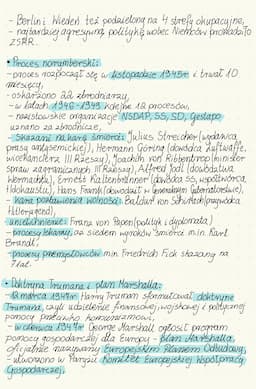 - Berlin i Wiedeń też podzielono na 4 strefy okupacyjne,
- najbardziej agresywną politykę wobec Niemców prowadziło
ZSRR.
• Proces norymberski:
- proces rozpoczął się w listopadzie 1945r i trwał 10
miesięcy,
- oskarżono 22 zbrodniarzy,
- w latach 1946-1949 kolejne 12 procesów,
- nazistowskie organizacje NSDAP, SS, SD, Gestapo
uznano za zbrodnicze,
- skazani na karę śmierci: Julius Streicher (wydawca
prasy antysemickiej), Hermann Göring (dowódca Luftwaffe,
wicekanclerz III Rzeszy), Joachim von Ribbentrop (minister
spraw zagranicznych III Rzeszy), Alfred Jodl (dowództwo
Wermachtu), Ernst Kaltenbrunner (dowódca SS, współtwórca
Holokaustu), Hans Frank (dowodził w Generalnym Gubernatorstwie),
- kara pozbawienia wolności: Baldur von Schirach (przywódca
Hitlerjugend),
- uniewinnienie: Franz von Papen (polityk i dyplomata)
- procesy lekarzy, aż siedem wyroków śmierci m.in. Karl
Brandt.
- procesy przemysłowców m.in. Friedrich Fick skazany na
7 lat.
• Doktryna Trumana i plan Marshalla:
- 12 marca 1947r Harry Truman sformułował doktrynę
Trumana, czyli udzielenie finansowej, wojskowej i politycznej
pomocy przeciwko komunizmowi,
- w czerwcu 1947r George Marshall ogłosił program
pomocy gospodarczej dla Europy - plan Marshalla,
oficjalnie nazywany Europejskim Planem Odbudowy,
- utworzono w Paryżu Komitet Europejskiej Współpracy
Gospodarczej,